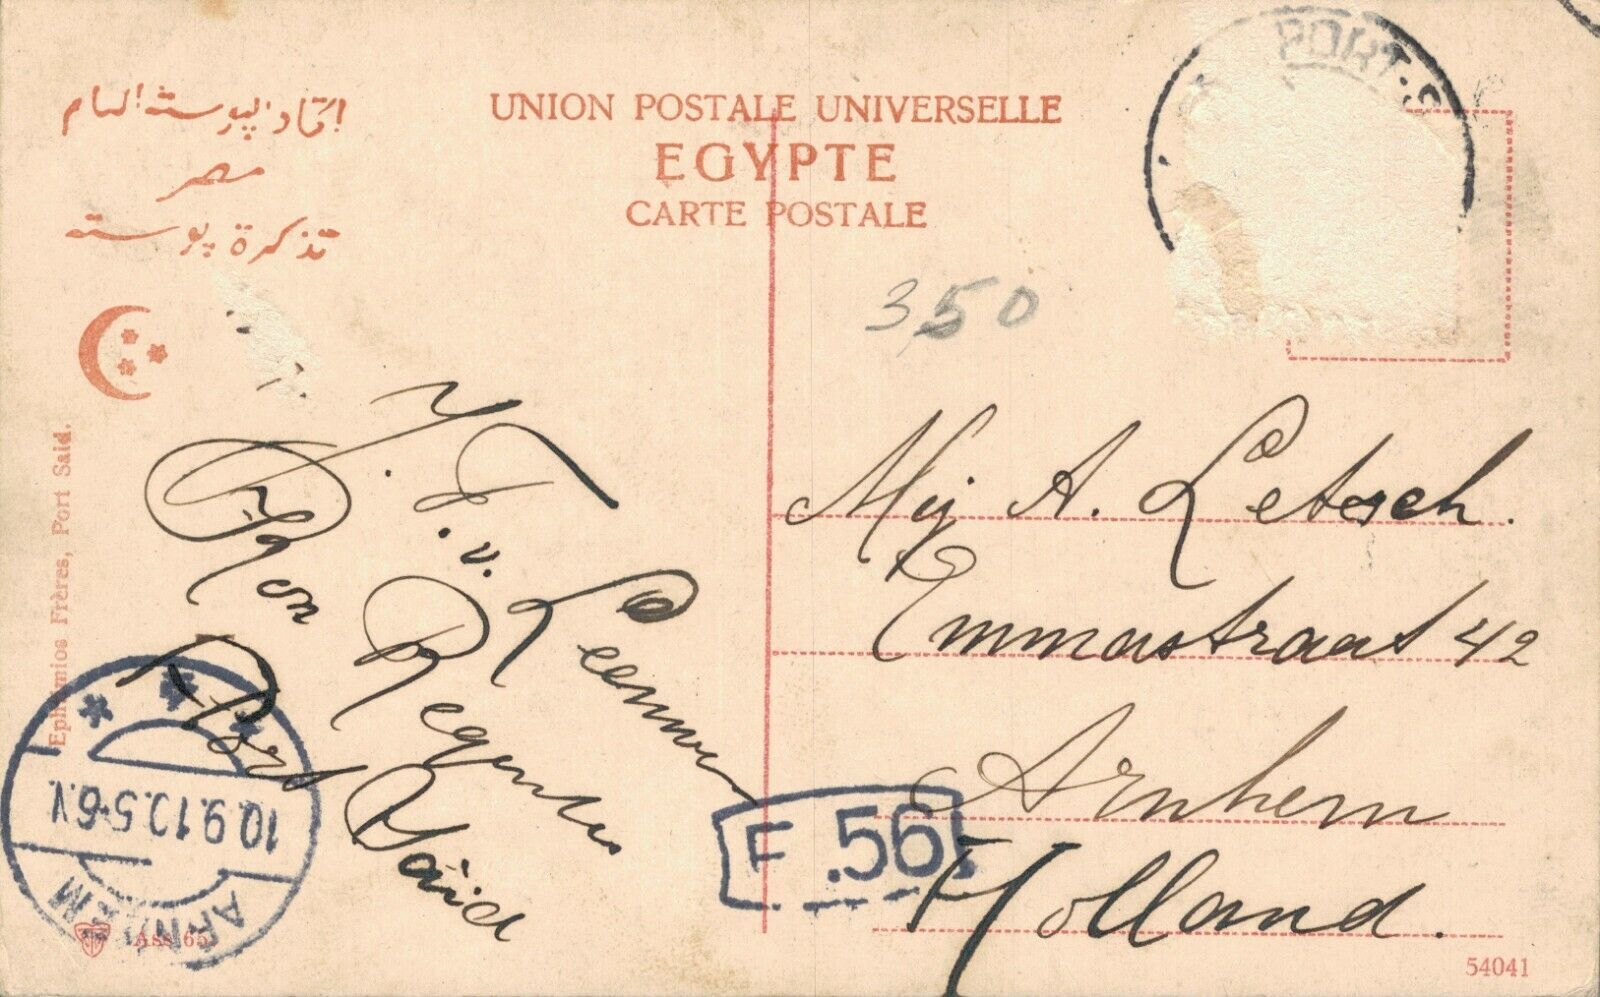 اتحاد البوسته العام
مصر
تذكرة پوسته
UNION POSTALE UNIVERSELLE
EGYPTE
CARTE POSTALE
PORT-S
350
Ephtimios Frères, Port Said.
J. F. v. Leeuwen
Port Saïd
Mej A. Letsch.
Emmastraat 42
Arnhem
Holland.
F.56.
10.9.10.5-6.V
ARNHEM
Ass 65
54041